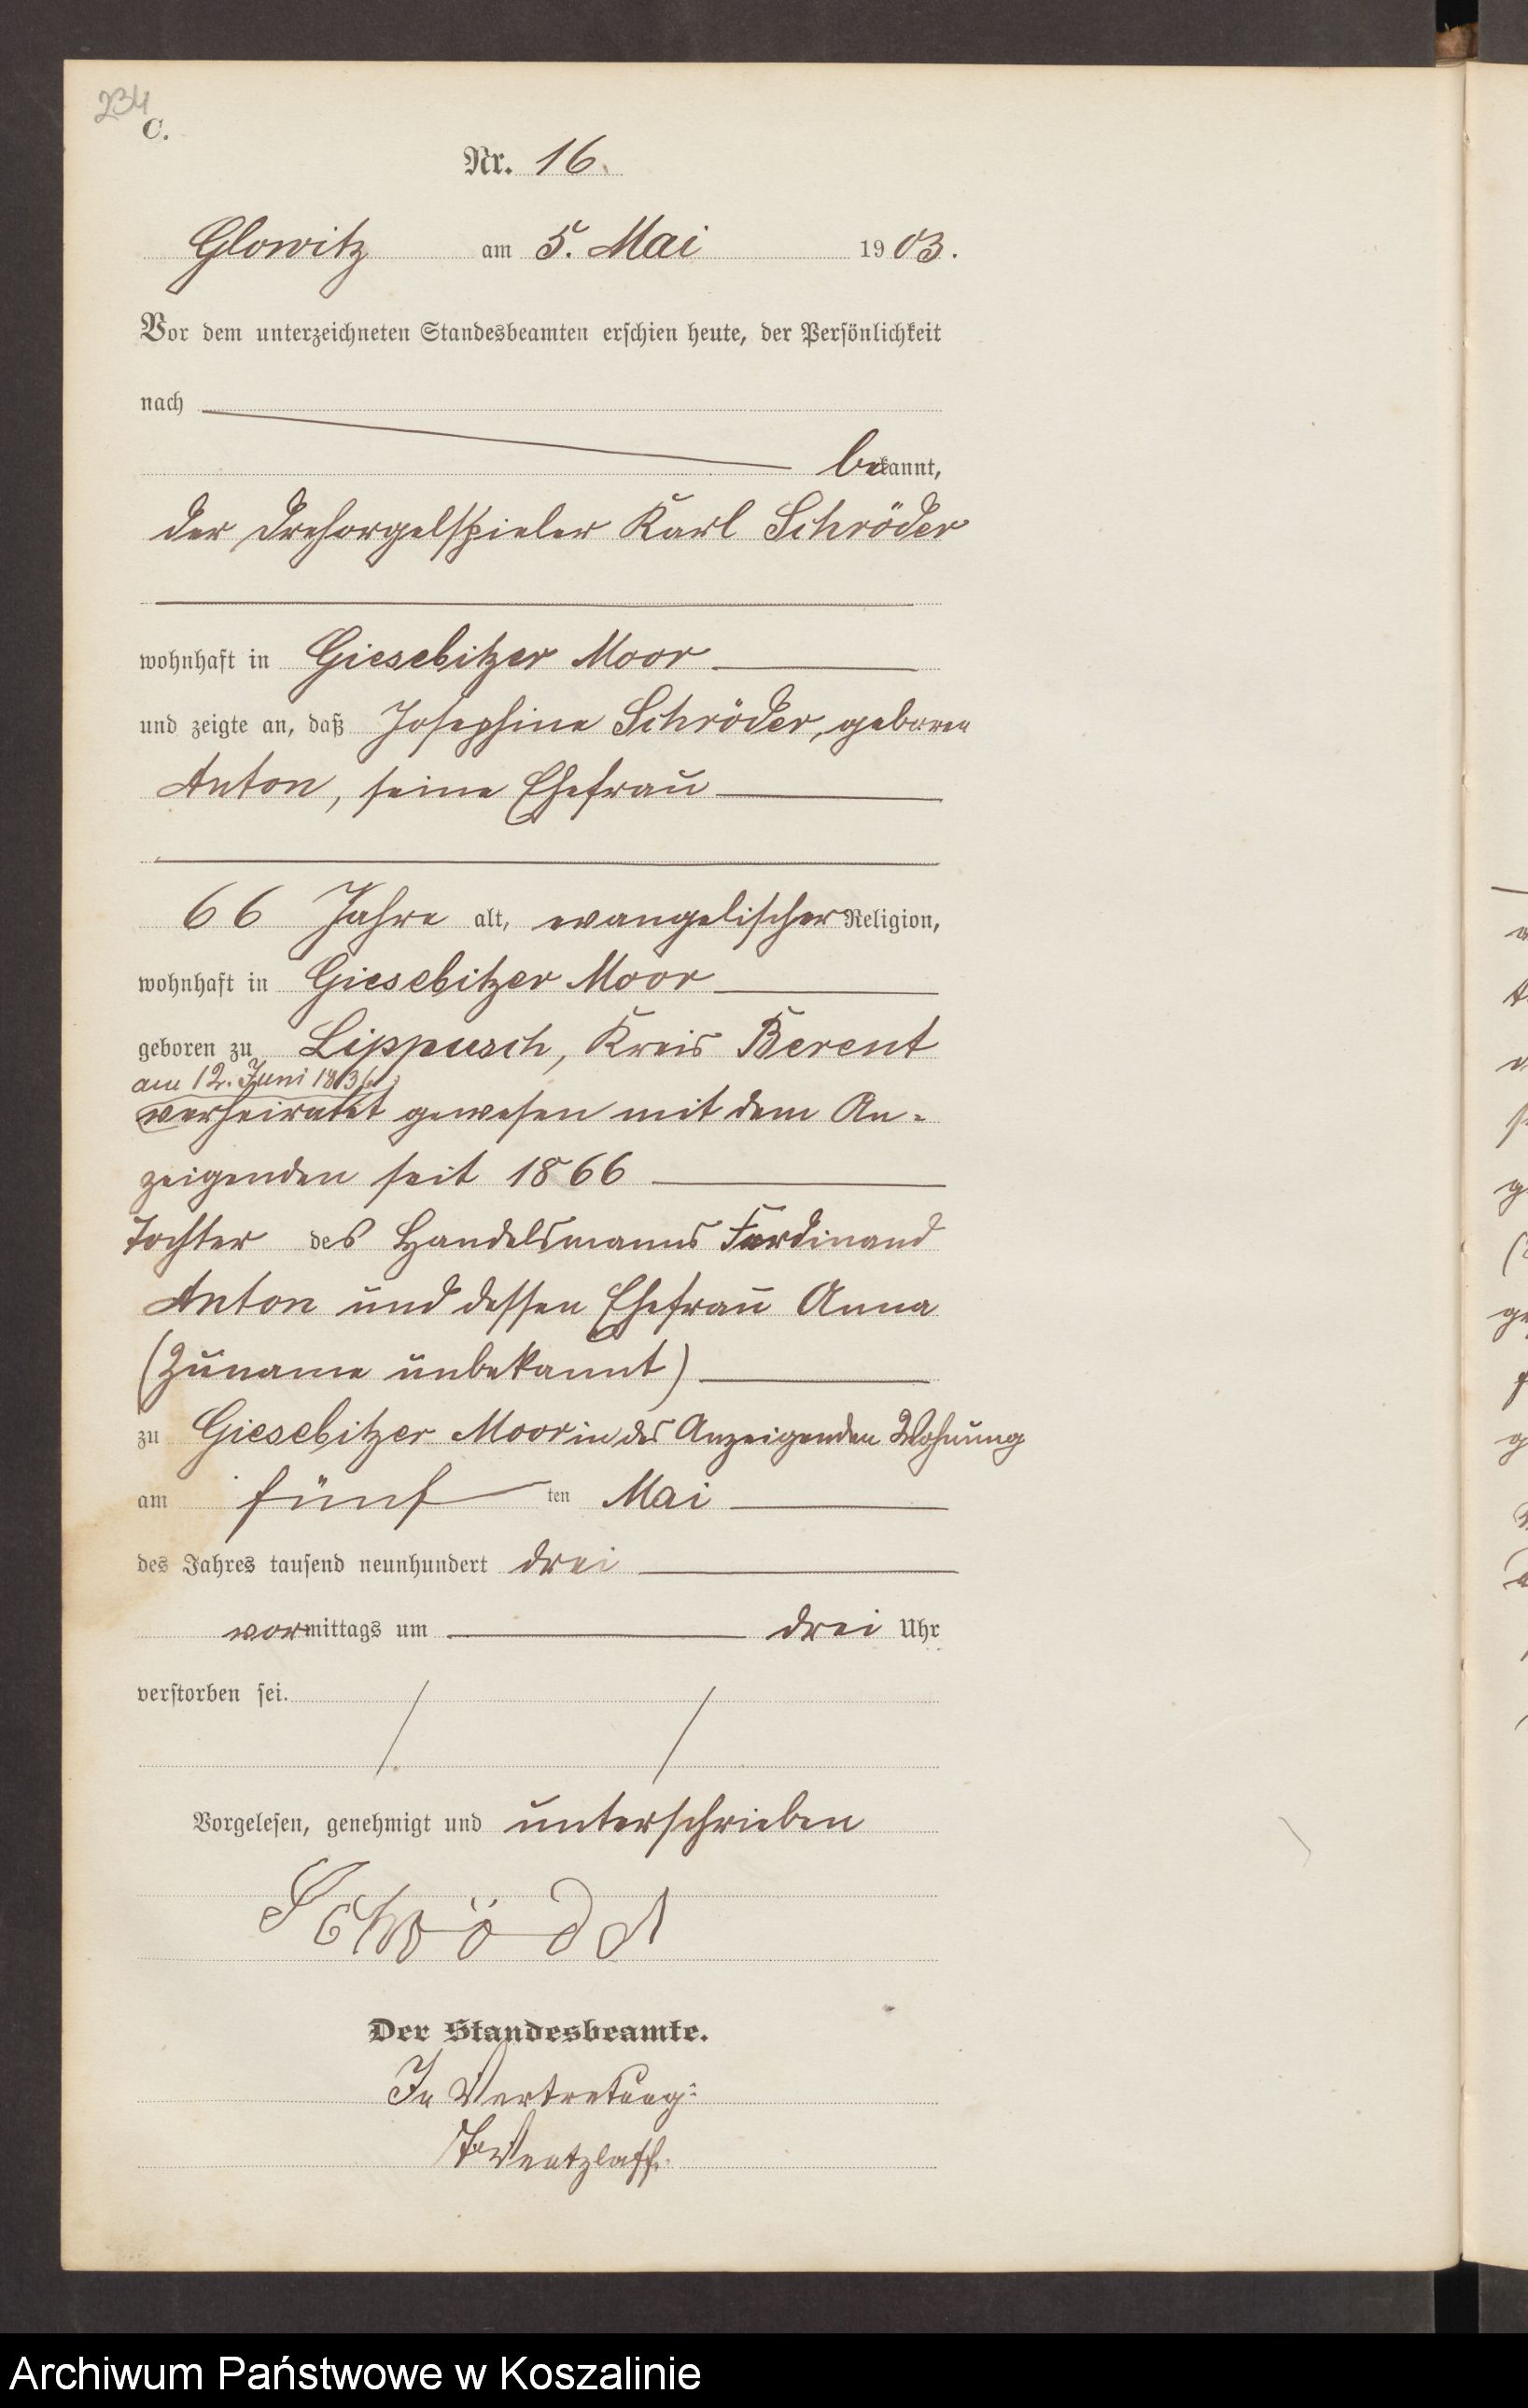 234
C.
Nr. 16.
Glowitz am 5. Mai 1903.
Vor dem unterzeichneten Standesbeamten erschien heute, der Persönlichkeit
nach
bekannt,
der Drehorgelspieler Karl Schröder
wohnhaft in Giesebitzer Moor
und zeigte an, daß Josephine Schröder, geboren
Anton, seine Ehefrau
66 Jahre alt, evangelischer Religion,
wohnhaft in Giesebitzer Moor
geboren zu Lippusch, Kreis Berent
am 12. Juni 1836
verheiratet gewesen mit dem An-
zeigenden seit 1866
Tochter des Handelsmanns Ferdinand
Anton und dessen Ehefrau Anna
(Zuname unbekannt)
zu Giesebitzer Moor in des Anzeigenden Wohnung
am fünf ten Mai
des Jahres tausend neunhundert drei
vormittags um drei Uhr
verstorben sei.
Vorgelesen, genehmigt und unterschrieben
Schröder
Der Standesbeamte.
In Vertretung:
Wentzlaff.
Archiwum Państwowe w Koszalinie